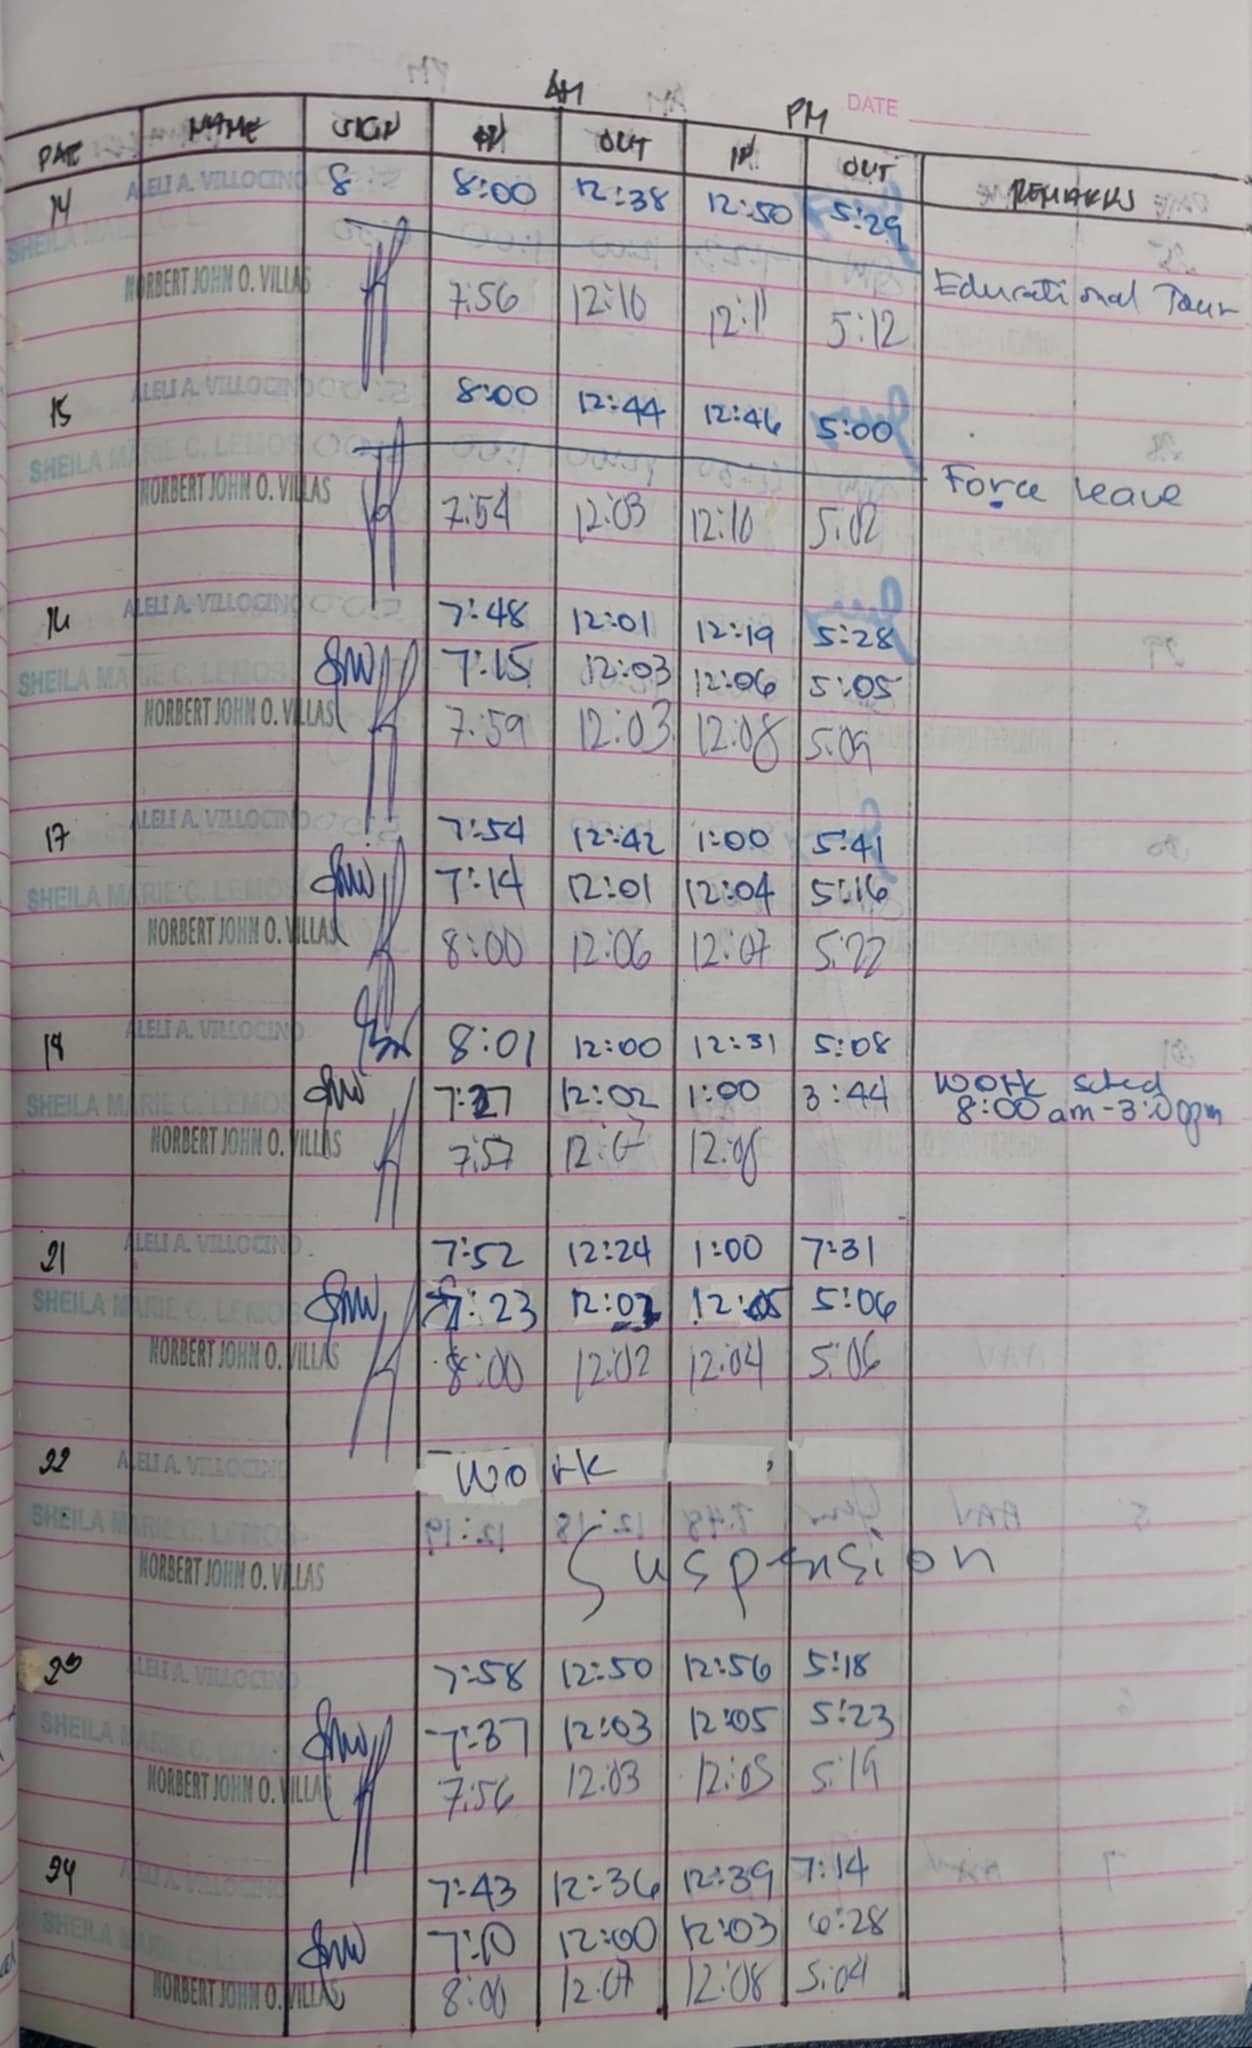 AM PM DATE
DATE NAME SIGN IN OUT IN OUT REMARKS
14 ALELI A. VILLOCINO 8 8:00 12:38 12:50 5:29
SHEILA MARIE C. L Educational Tour
NORBERT JOHN O. VILLAS 7:56 12:10 12:11 5:12
15 ALELI A. VILLOCINO 8:00 12:44 12:46 5:00
SHEILA MARIE C. LEMOS Force leave
NORBERT JOHN O. VILLAS 7:54 12:03 12:10 5:02
16 ALELI A. VILLOCINO 7:48 12:01 12:19 5:28
SHEILA MARIE C. LEMOS 7:15 12:03 12:06 5:05
NORBERT JOHN O. VILLAS 7:59 12:03 12:08 5:09
17 ALELI A. VILLOCINO 7:54 12:42 1:00 5:41
SHEILA MARIE C. LEMOS 7:14 12:01 12:04 5:16
NORBERT JOHN O. VILLAS 8:00 12:06 12:07 5:22
18 ALELI A. VILLOCINO 8:01 12:00 12:31 5:08
SHEILA MARIE C. LEMOS 7:27 12:02 1:00 3:44 Work sched
8:00 am-3:00pm
NORBERT JOHN O. VILLAS 7:57 12:07 12:08
21 ALELI A. VILLOCINO 7:52 12:24 1:00 7:31
SHEILA MARIE C. LEMOS 7:23 12:03 12:05 5:06
NORBERT JOHN O. VILLAS 8:00 12:02 12:04 5:06
22 ALELI A. VILLOCINO Work
SHEILA MARIE C. LEMOS Suspension
NORBERT JOHN O. VILLAS
23 ALELI A. VILLOCINO 7:58 12:50 12:56 5:18
SHEILA MARIE C. LEMOS 7:37 12:03 12:05 5:23
NORBERT JOHN O. VILLAS 7:56 12:03 12:05 5:19
24 ALELI A. VILLOCINO 7:43 12:36 12:39 7:14
SHEILA MARIE C. LEMOS 7:10 12:00 12:03 6:28
NORBERT JOHN O. VILLAS 8:00 12:07 12:08 5:04